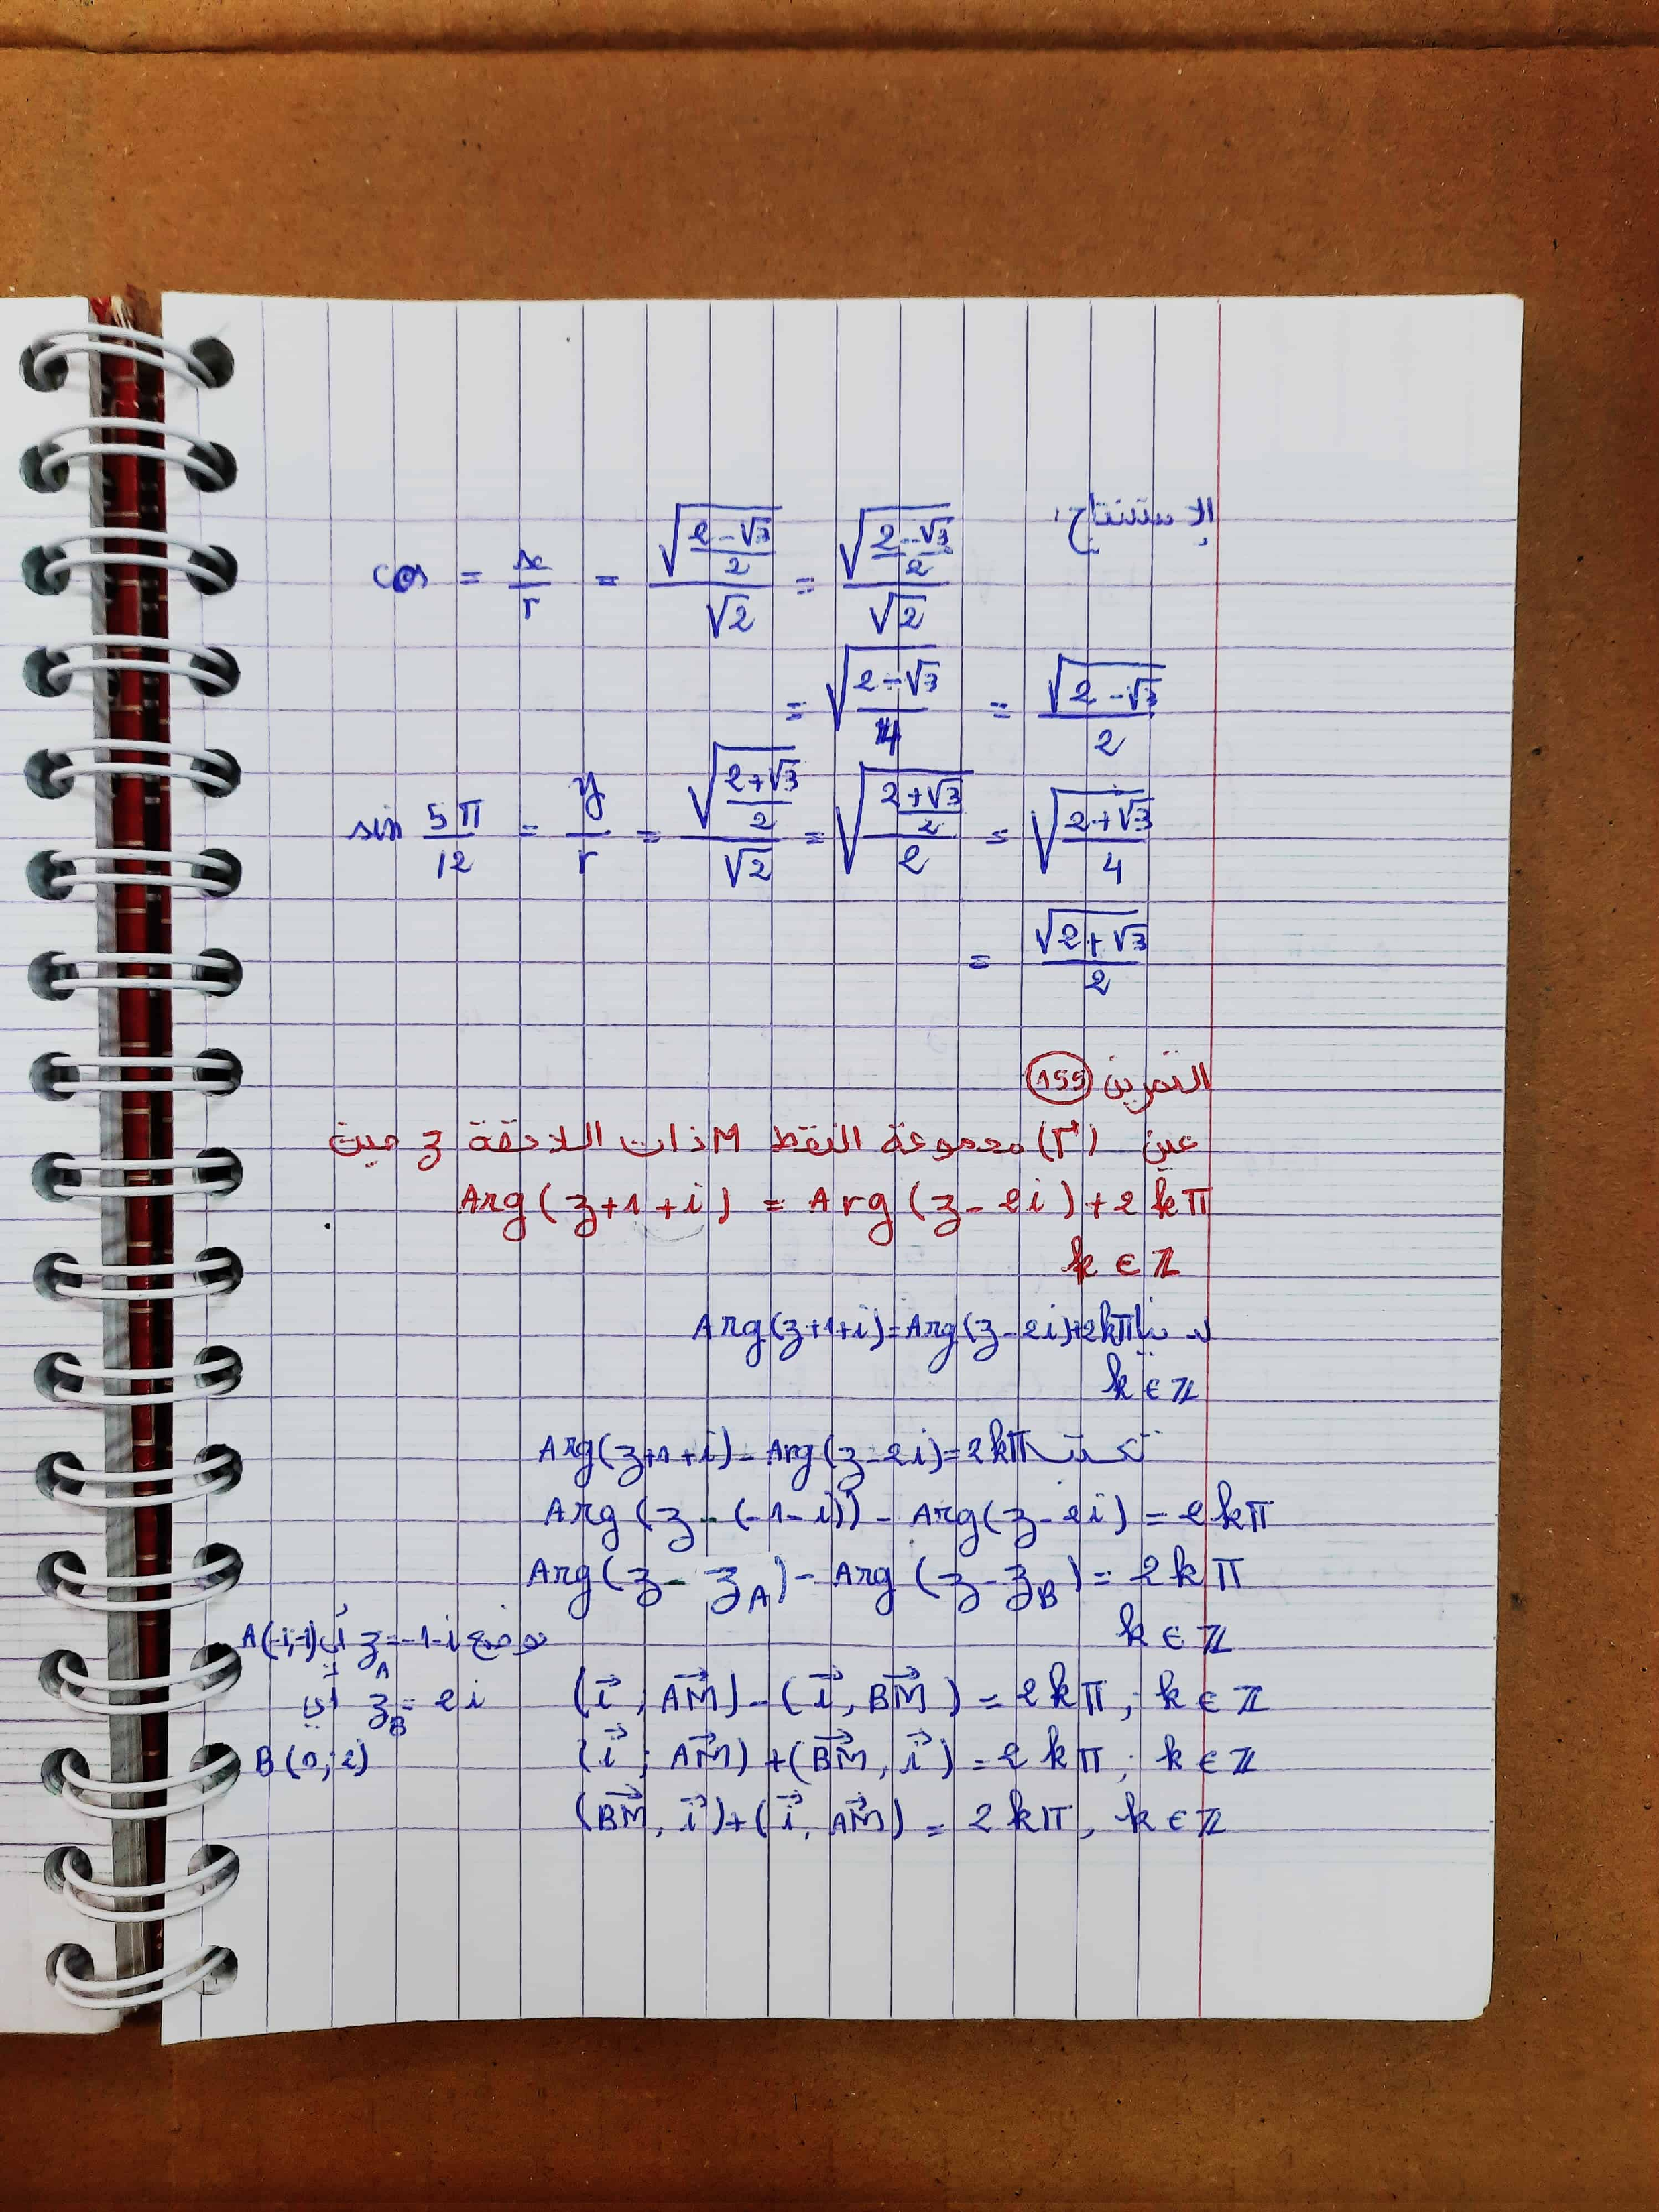 الإستنتاج:
cos = x/r = √((2-√3)/2)/√2 = √((2-√3)/2)/√2
= √((2-√3)/4) = √(2-√3)/2
sin 5π/12 = y/r = √((2+√3)/2)/√2 = √(((2+√3)/2)/2) = √((2+√3)/4)
= √(2+√3)/2
التمرين 155
عين (Γ) مجموعة النقط M ذات اللاحقة z حيث
Arg(z+1+i) = Arg(z-2i)+2kπ
k ∈ ℤ
لدينا Arg(z+1+i)=Arg(z-2i)+2kπ
k ∈ ℤ
تكتب Arg(z+1+i)-Arg(z-2i)=2kπ
Arg(z-(-1-i))-Arg(z-2i)=2kπ
Arg(z-z_A)-Arg(z-z_B)=2kπ
k ∈ ℤ
بوضع z_A=-1-i أي A(-1,-1)
(i⃗; AM⃗)-(i⃗, BM⃗)=2kπ; k ∈ ℤ
z_B=2i أي
(i⃗; AM⃗)+(BM⃗, i⃗)=2kπ; k ∈ ℤ
B(0;2)
(BM⃗, i⃗)+(i⃗, AM⃗)=2kπ, k ∈ ℤ